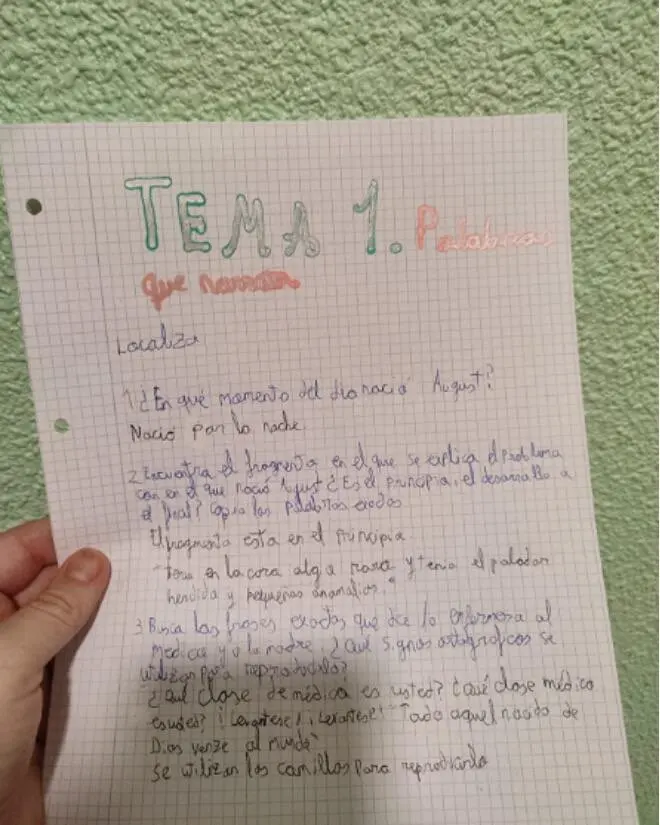 TEMA 1. Palabras
que narran
Localiza
1 ¿En qué momento del dia nació August?
Nació por la noche.
2 Encuentra el fragmento en el que se explica el problema
con en el que nació August ¿Es el principio, el desarrollo o
el final? copia las palabras exactas
El fragmento esta en el principio.
"Tenia en la cara algo raro y tenia el paladar
hendido y pequeñas anomalias."
3 Busca las frases exactas que dice la enfermera al
medico y a la madre ¿Qué signos ortográficos se
utilizan para reproducirlo?
¿Qué clase de médico es usted? ¿Qué clase médico
es usted? ¡Levantese! ¡Levantese! "Todo aquel nacido de
Dios vence al mundo"
Se utilizan las comillas para reproducirlo